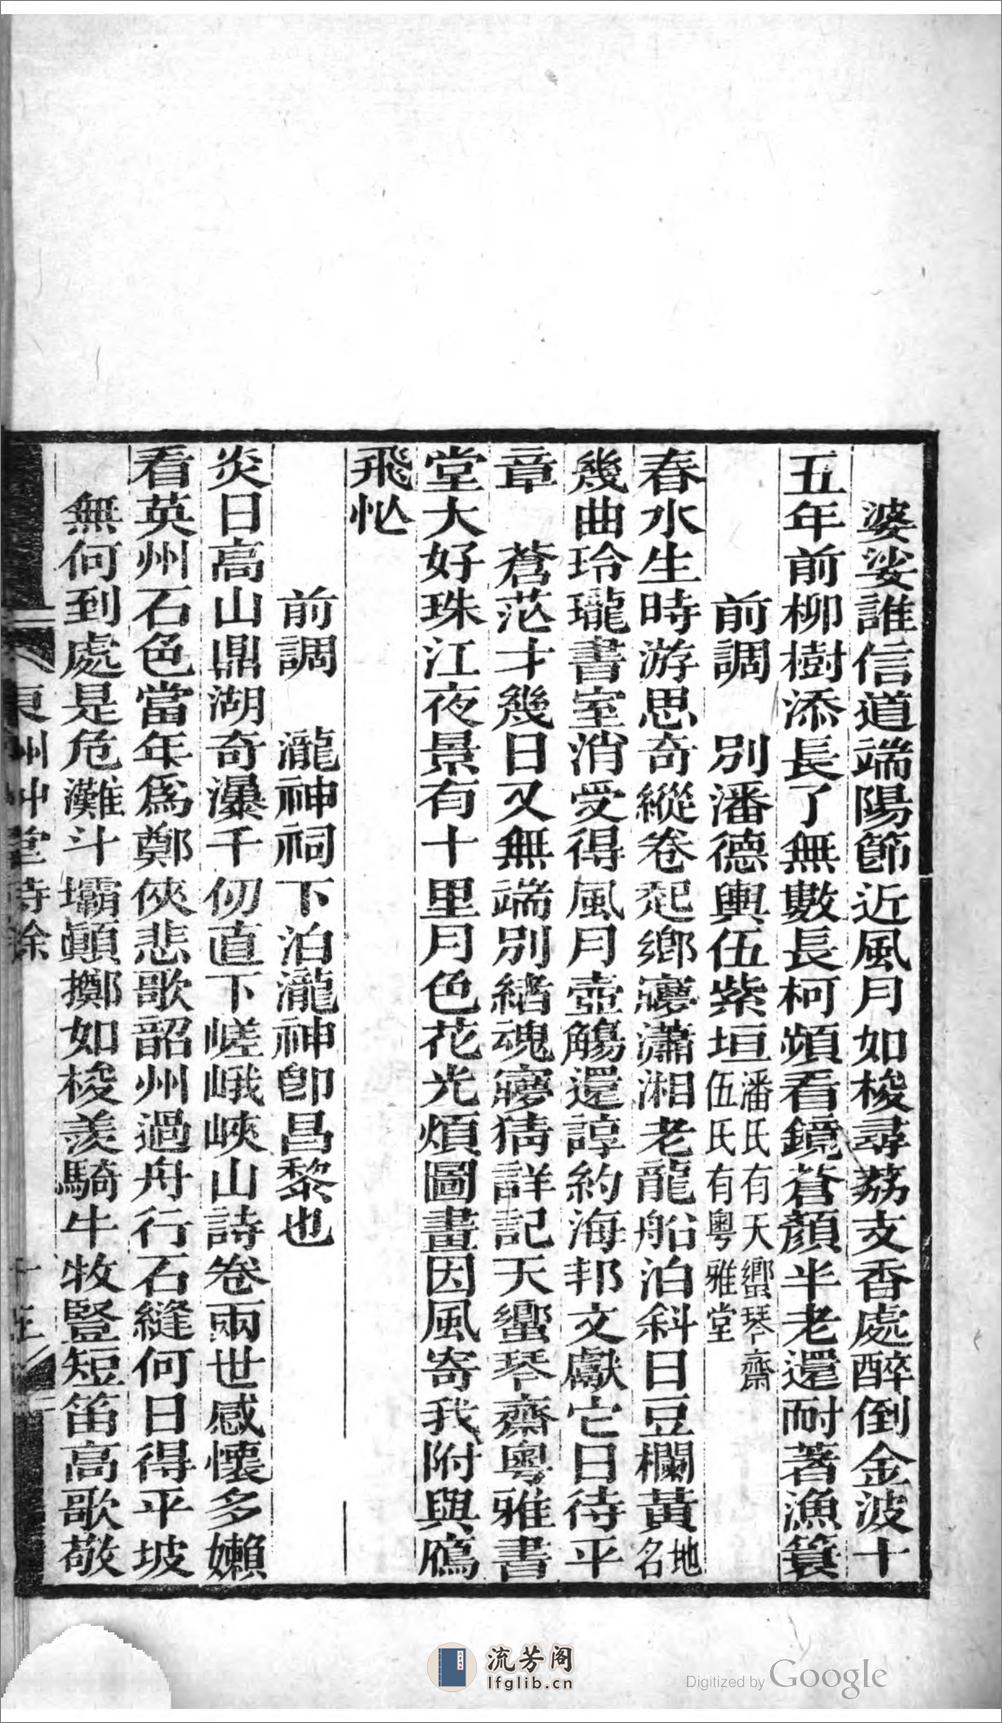 婆娑誰信道端陽節近風月如梭尋荔支香處醉倒金波十
五年前柳樹添長了無數長柯頻看鏡蒼顏半老還耐著漁簑
前調　別潘德輿伍紫垣潘氏有天蠁琴齋伍氏有粵雅堂
春水生時游思奇縱卷起鄉夢瀟湘老龍船泊科日豆欄黃地名
幾曲玲瓏書室消受得風月壺觴還諄約海邦文獻它日待平
章　蒼茫才幾日又無端別緒魂夢猜詳記天蠁琴齋粵雅書
堂大好珠江夜景有十里月色花光煩圖畫因風寄我附與鴈
飛忙
前調　瀧神祠下泊瀧神卽昌黎也
炎日高山鼎湖奇瀑千仞直下嵯峨峽山詩卷兩世感懷多嬾
看英州石色當年爲鄭俠悲歌韶州過舟行石縫何日得平坡
無何到處是危灘斗壩顚擲如梭羨騎牛牧豎短笛高歌敬
東州艸堂詩餘
流芳阁
lfglib.cn
Digitized by Google